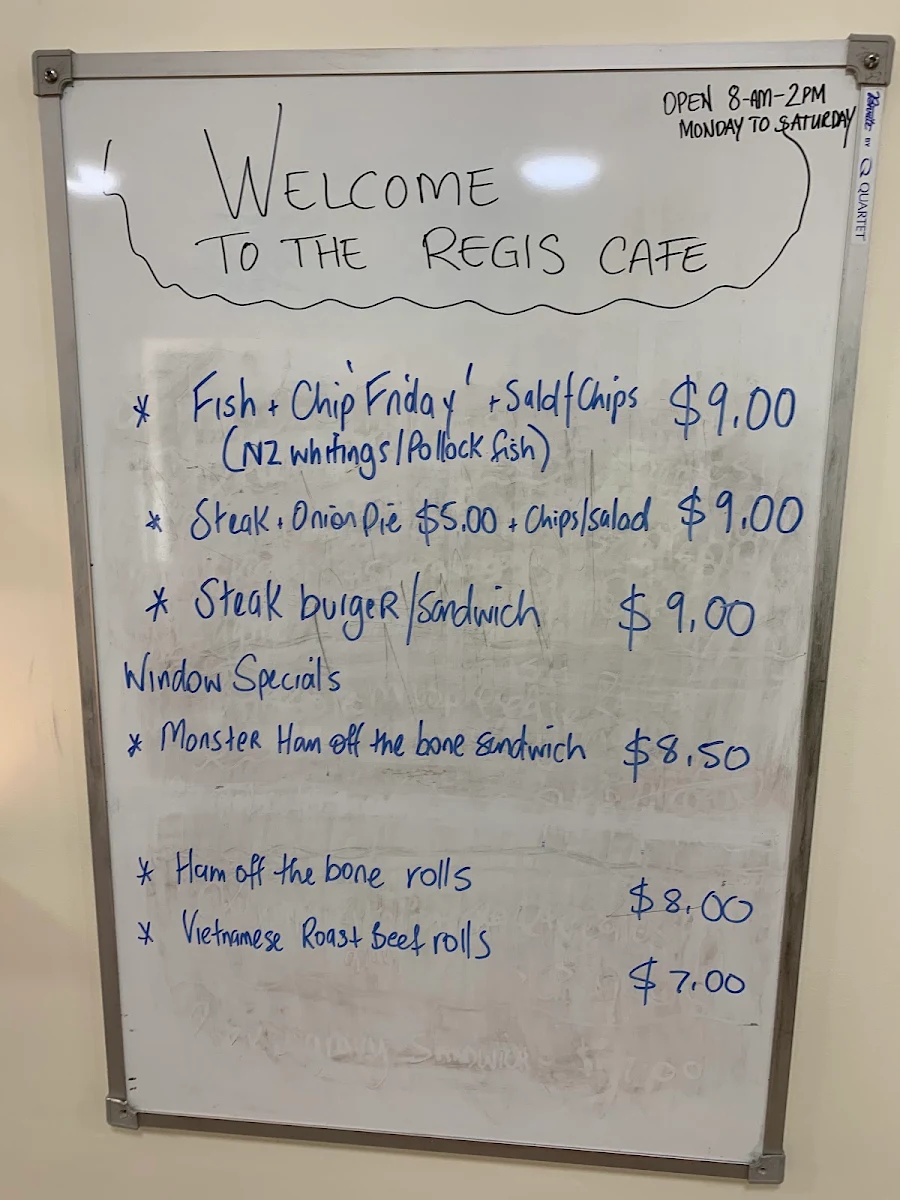 OPEN 8-AM-2PM
MONDAY TO SATURDAY
BY Q QUARTET
WELCOME
TO THE REGIS CAFE
* Fish + Chip 'Friday' + Sald/Chips $9.00
(NZ whitings/Pollock fish)
* Steak + Onion Pie $5.00 + Chips/salad $9.00
* Steak burger/sandwich $9.00
Window Specials
* Monster Ham off the bone sandwich $8.50
* Ham off the bone rolls $8.00
* Vietnamese Roast Beef rolls $7.00